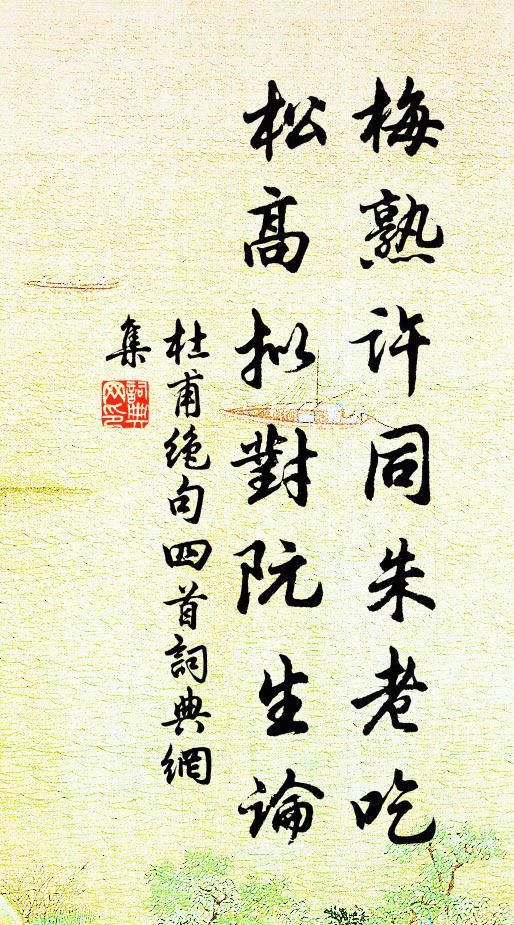 梅熟許同朱老吃
松高拟對阮生論
杜甫絶句四首詞典網
集
詞典
网印